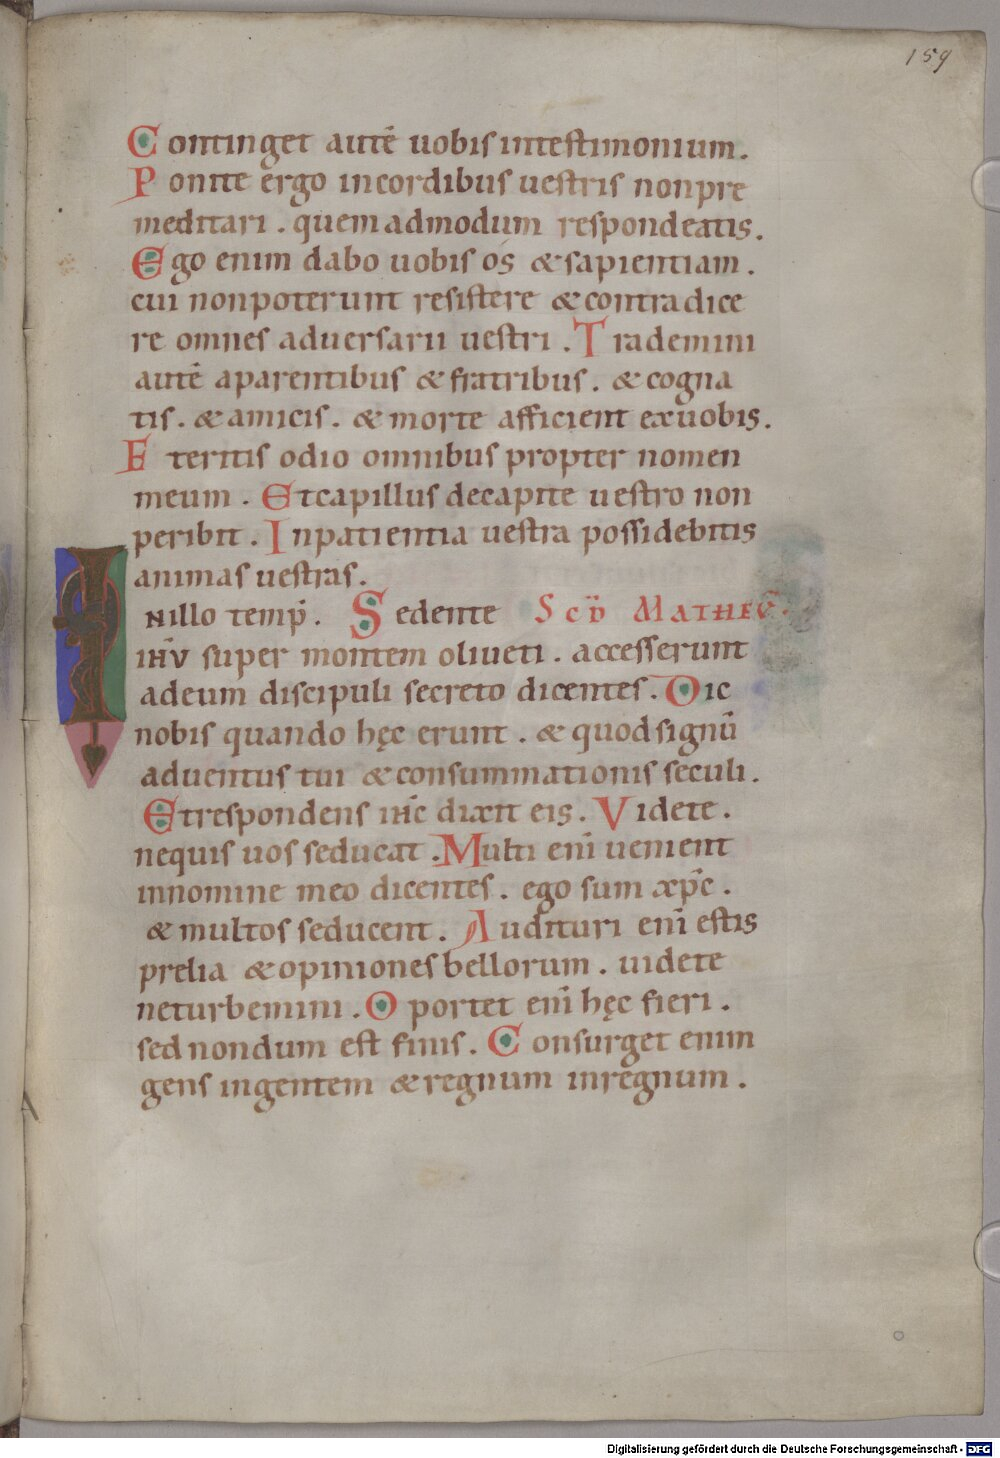 159
Continget autē uobis intestimonium.
Ponite ergo incordibus uestris nonpre
meditari. quemadmodum respondeatis.
Ego enim dabo uobis ós & sapientiam.
cui nonpoterunt resistere & contradice
re omnes aduersarii uestri. Trademini
autē aparentibus & fratribus. & cogna
tis. & amicis. & morte afficient exuobis.
Eteritis odio omnibus propter nomen
meum. Etcapillus decapite uestro non
peribit. Inpatientia uestra possidebitis
animas uestras.
INillo temp̄. Sedente Scd̄ Matheū.
ih̄u super montem oliueti. accesserunt
adeum discipuli secreto dicentes. Dic
nobis quando hęc erunt. & quodsignū
aduentus tui & consummationis seculi.
Etrespondens ih̄c dixit eis. Videte.
nequis uos seducat. Multi eni̅ uenient
innomine meo dicentes. ego sum xp̄c.
& multos seducent. Audituri eni̅ estis
prelia & opiniones bellorum. uidete
neturbemini. Oportet eni̅ hęc fieri.
sed nondum est finis. Consurget enim
gens ingentem & regnum inregnum.
Digitalisierung gefördert durch die Deutsche Forschungsgemeinschaft - DFG